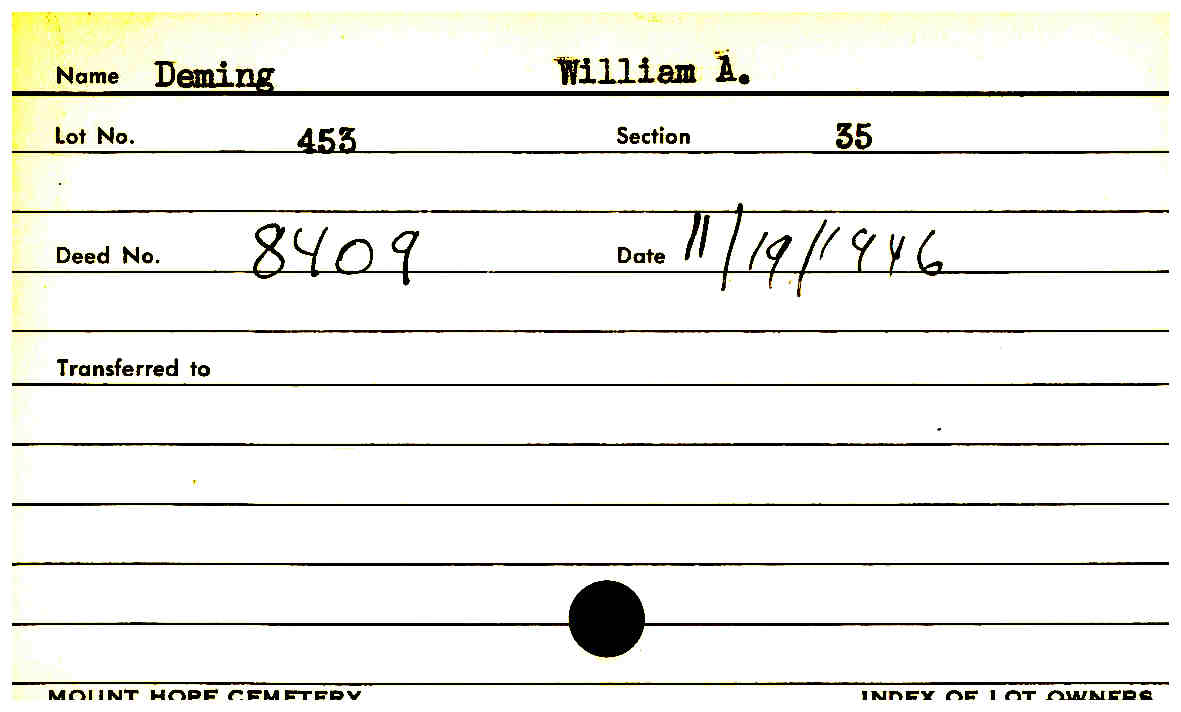 Name Deming William A.
Lot No. 453 Section 35
Deed No. 8409 Date 11/19/1946
Transferred to
MOUNT HOPE CEMETERY INDEX OF LOT OWNERS